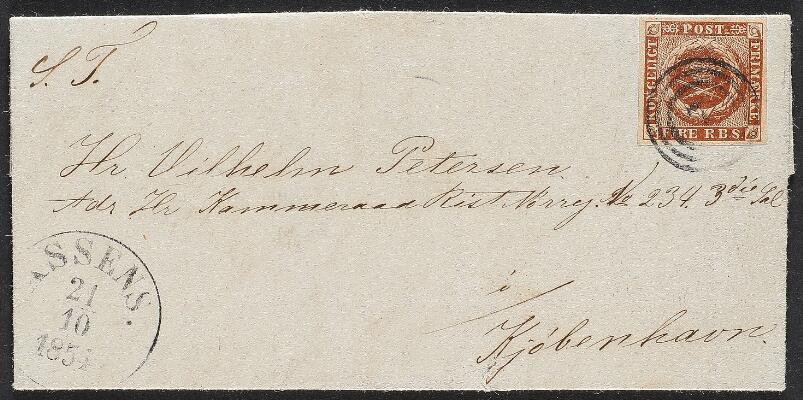 S. T.
KONGELIGT POST FRIMÆRKE
FIRE R.B.S.
Hr. Vilhelm Petersen
Adr Hr Kammeraad Rist Nørreg. No 234. 3die Sal
i
Kjöbenhavn.
ASSENS.
21
10
185